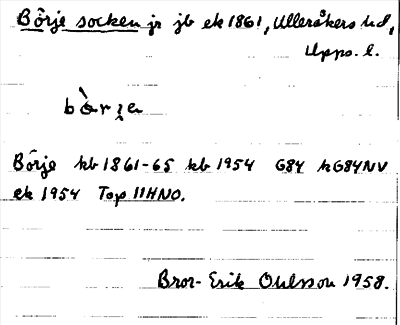 Börje socken jr jb ek 1861, Ulleråkers hd,
Upps. l.
bòrɪ̨e
Börje kb 1861-65 kb 1954 G84 hG84NV
ek 1954 Top 11HNO.
Bror-Erik Ohlsson 1958.